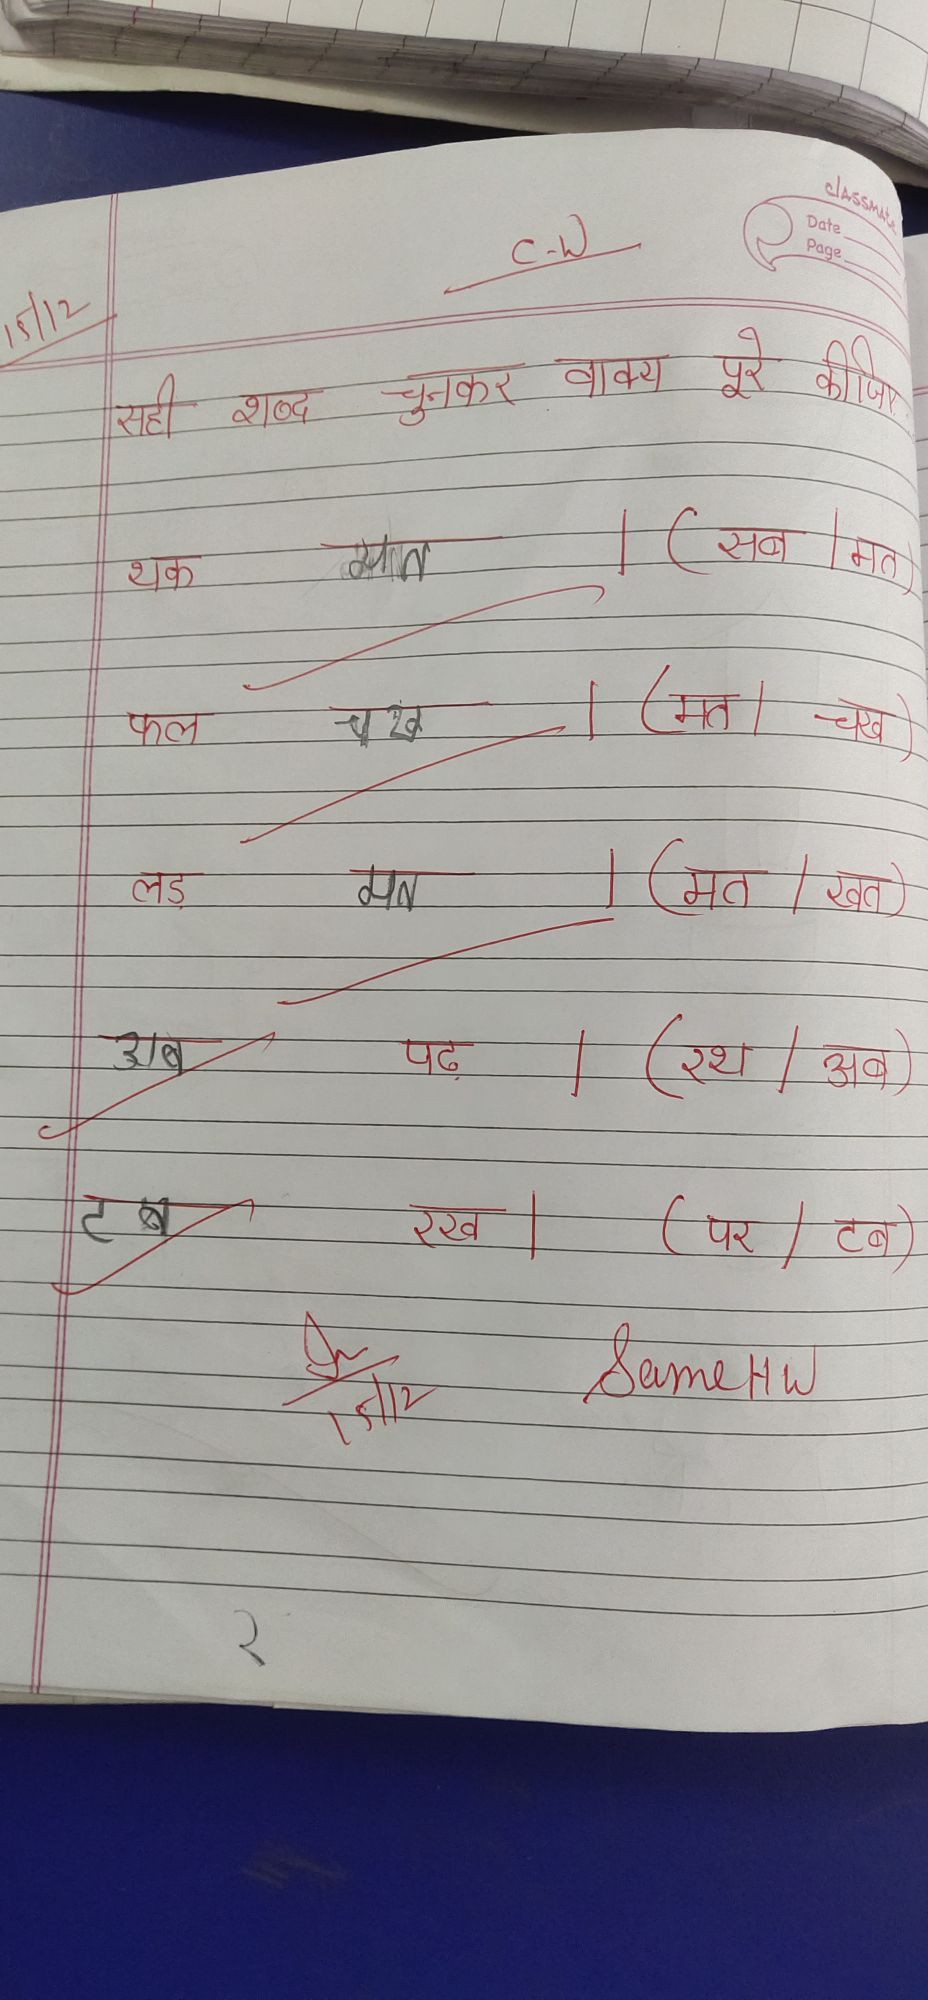 classmate
Date
Page
C-W
15/12
सही शब्द चुनकर वाक्य पूरे कीजिए
थक मत | (सब / मत)
फल चख | (मत / चख)
लड़ मत | (मत / खत)
अब पढ़ | (रथ / अब)
टब रख | (पर / टब)
15/12
Same HW
२